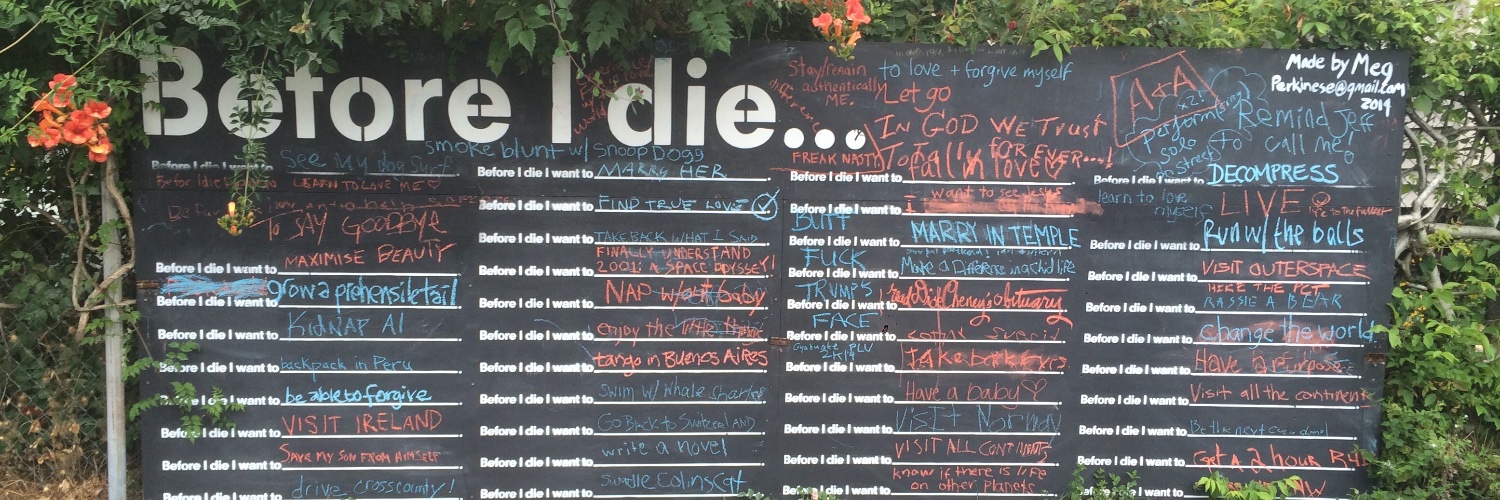 Before I die...
Made by Meg
Perkinese@gmail.com
2014
Stay/remain
authentically
ME.
to love + forgive myself
Let go
IN GOD WE TRUST
FOR EVER...!
A+A
Remind Jeff
to call me!
perform
solo
on street
smoke blunt w/ SNOOP DOGG
Before I die I want to See My dog Surf
LEARN TO LOVE ME ♡
To SAY GOODBYE
Before I die I want to MAXIMISE BEAUTY
Before I die I want to grow a prehensile tail
Before I die I want to KidNAP Al
Before I die I want to backpack in Peru
Before I die I want to be able to forgive
Before I die I want to VISIT IRELAND
Before I die I want to SAVE MY SON FROM HIMSELF
Before I die I want to drive crosscountry!
Before I die I want to MARRY HER
Before I die I want to FIND TRUE LOVE
Before I die I want to TAKE BACK WHAT I SAID
Before I die I want to FINALLY UNDERSTAND
2001: A SPACE ODYSSEY!
Before I die I want to NAP w/out baby
Before I die I want to enjoy the little things
Before I die I want to tango in Buenos Aires
Before I die I want to Swim w/ whale sharks
Before I die I want to Go Back to Switzerland
Before I die I want to write a novel
Before I die I want to Colins cat
FREAK NASTY
Before I die I want to To fall in love ♡
Before I die I want to I want to see Jesus
BUTT
FUCK
TRUMPS
FACE
Before I die I want to MARRY IN TEMPLE
Before I die I want to Make a Difference in a child's life
Before I die I want to read Dick Cheney's obituary
Before I die I want to
Graduate PLU
2K14
Before I die I want to take back
Before I die I want to Have a baby ♡
Before I die I want to Visit
Before I die I want to VISIT ALL CONTINENTS
Before I die I want to know if there is life
on other planets
Before I die I want to DECOMPRESS
learn to love
myself
LIVE
life to the fullest
Before I die I want to Run w/ the balls
Before I die I want to VISIT OUTERSPACE
Before I die I want to HIKE THE PCT
RASSLE A BEAR
Before I die I want to change the world
Before I die I want to Have a purpose
Before I die I want to Visit all the continents
Before I die I want to Be the next
Before I die I want to Get A 2 hour
Before I die I want to